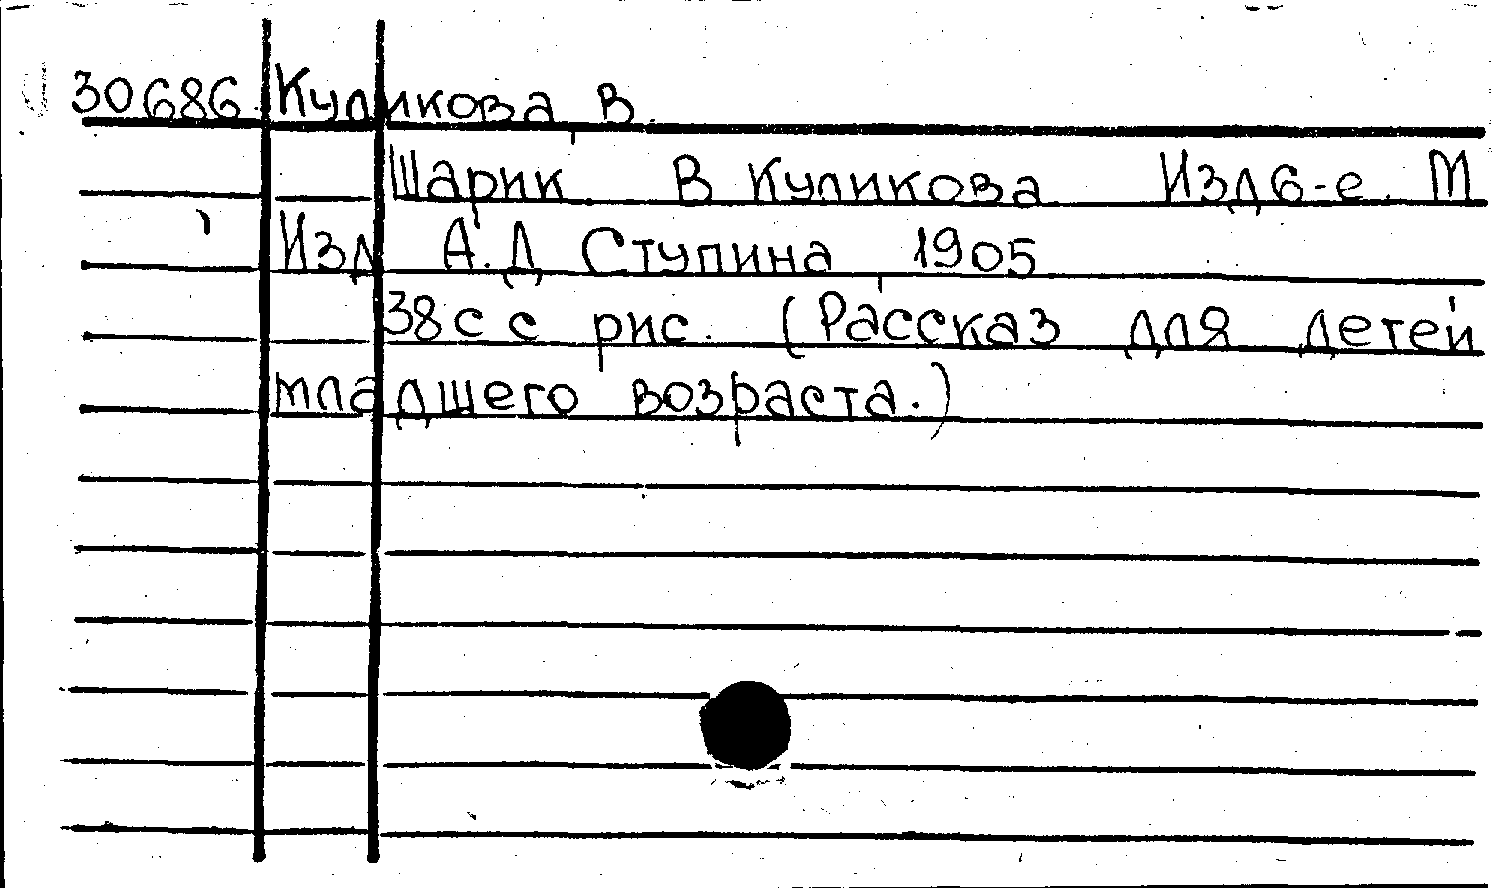 30686 Куликова, В.
Шарик В Куликова Изд 6-е. М
Изд А.Д Ступина, 1905
38с с рис. (Рассказ для детей
младшего возраста.)